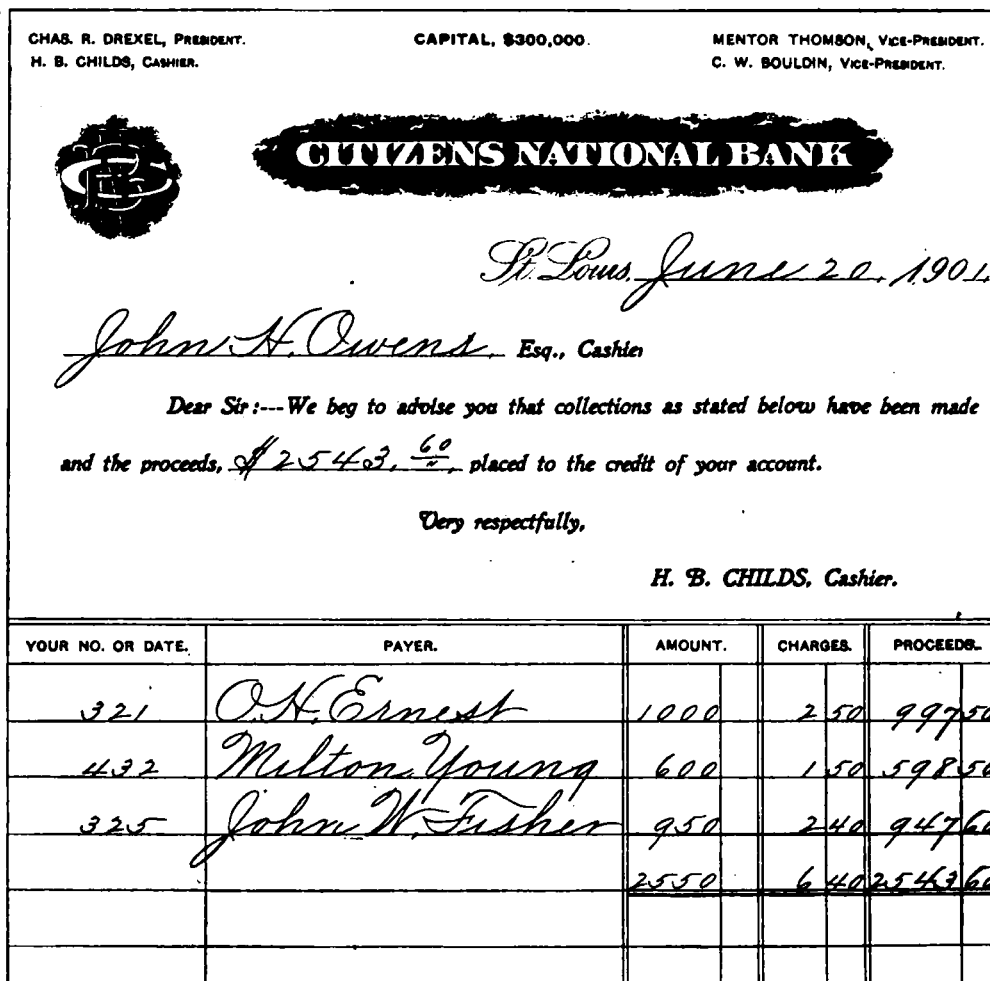 CHAS. R. DREXEL, PRESIDENT. CAPITAL, $300,000. MENTOR THOMSON, VICE-PRESIDENT.
H. B. CHILDS, CASHIER. C. W. BOULDIN, VICE-PRESIDENT.
CITIZENS NATIONAL BANK
St. Louis, June 20, 1901.
John H. Owens, Esq., Cashier
Dear Sir:---We beg to advise you that collections as stated below have been made
and the proceeds, $2543. 60/" , placed to the credit of your account.
Very respectfully,
H. B. CHILDS, Cashier.
YOUR NO. OR DATE. PAYER. AMOUNT. CHARGES. PROCEEDS.
321 O. H. Ernest 1000 2 50 997 50
432 Milton Young 600 1 50 598 50
325 John W. Fisher 950 2 40 947 60
2550 6 40 2543 60